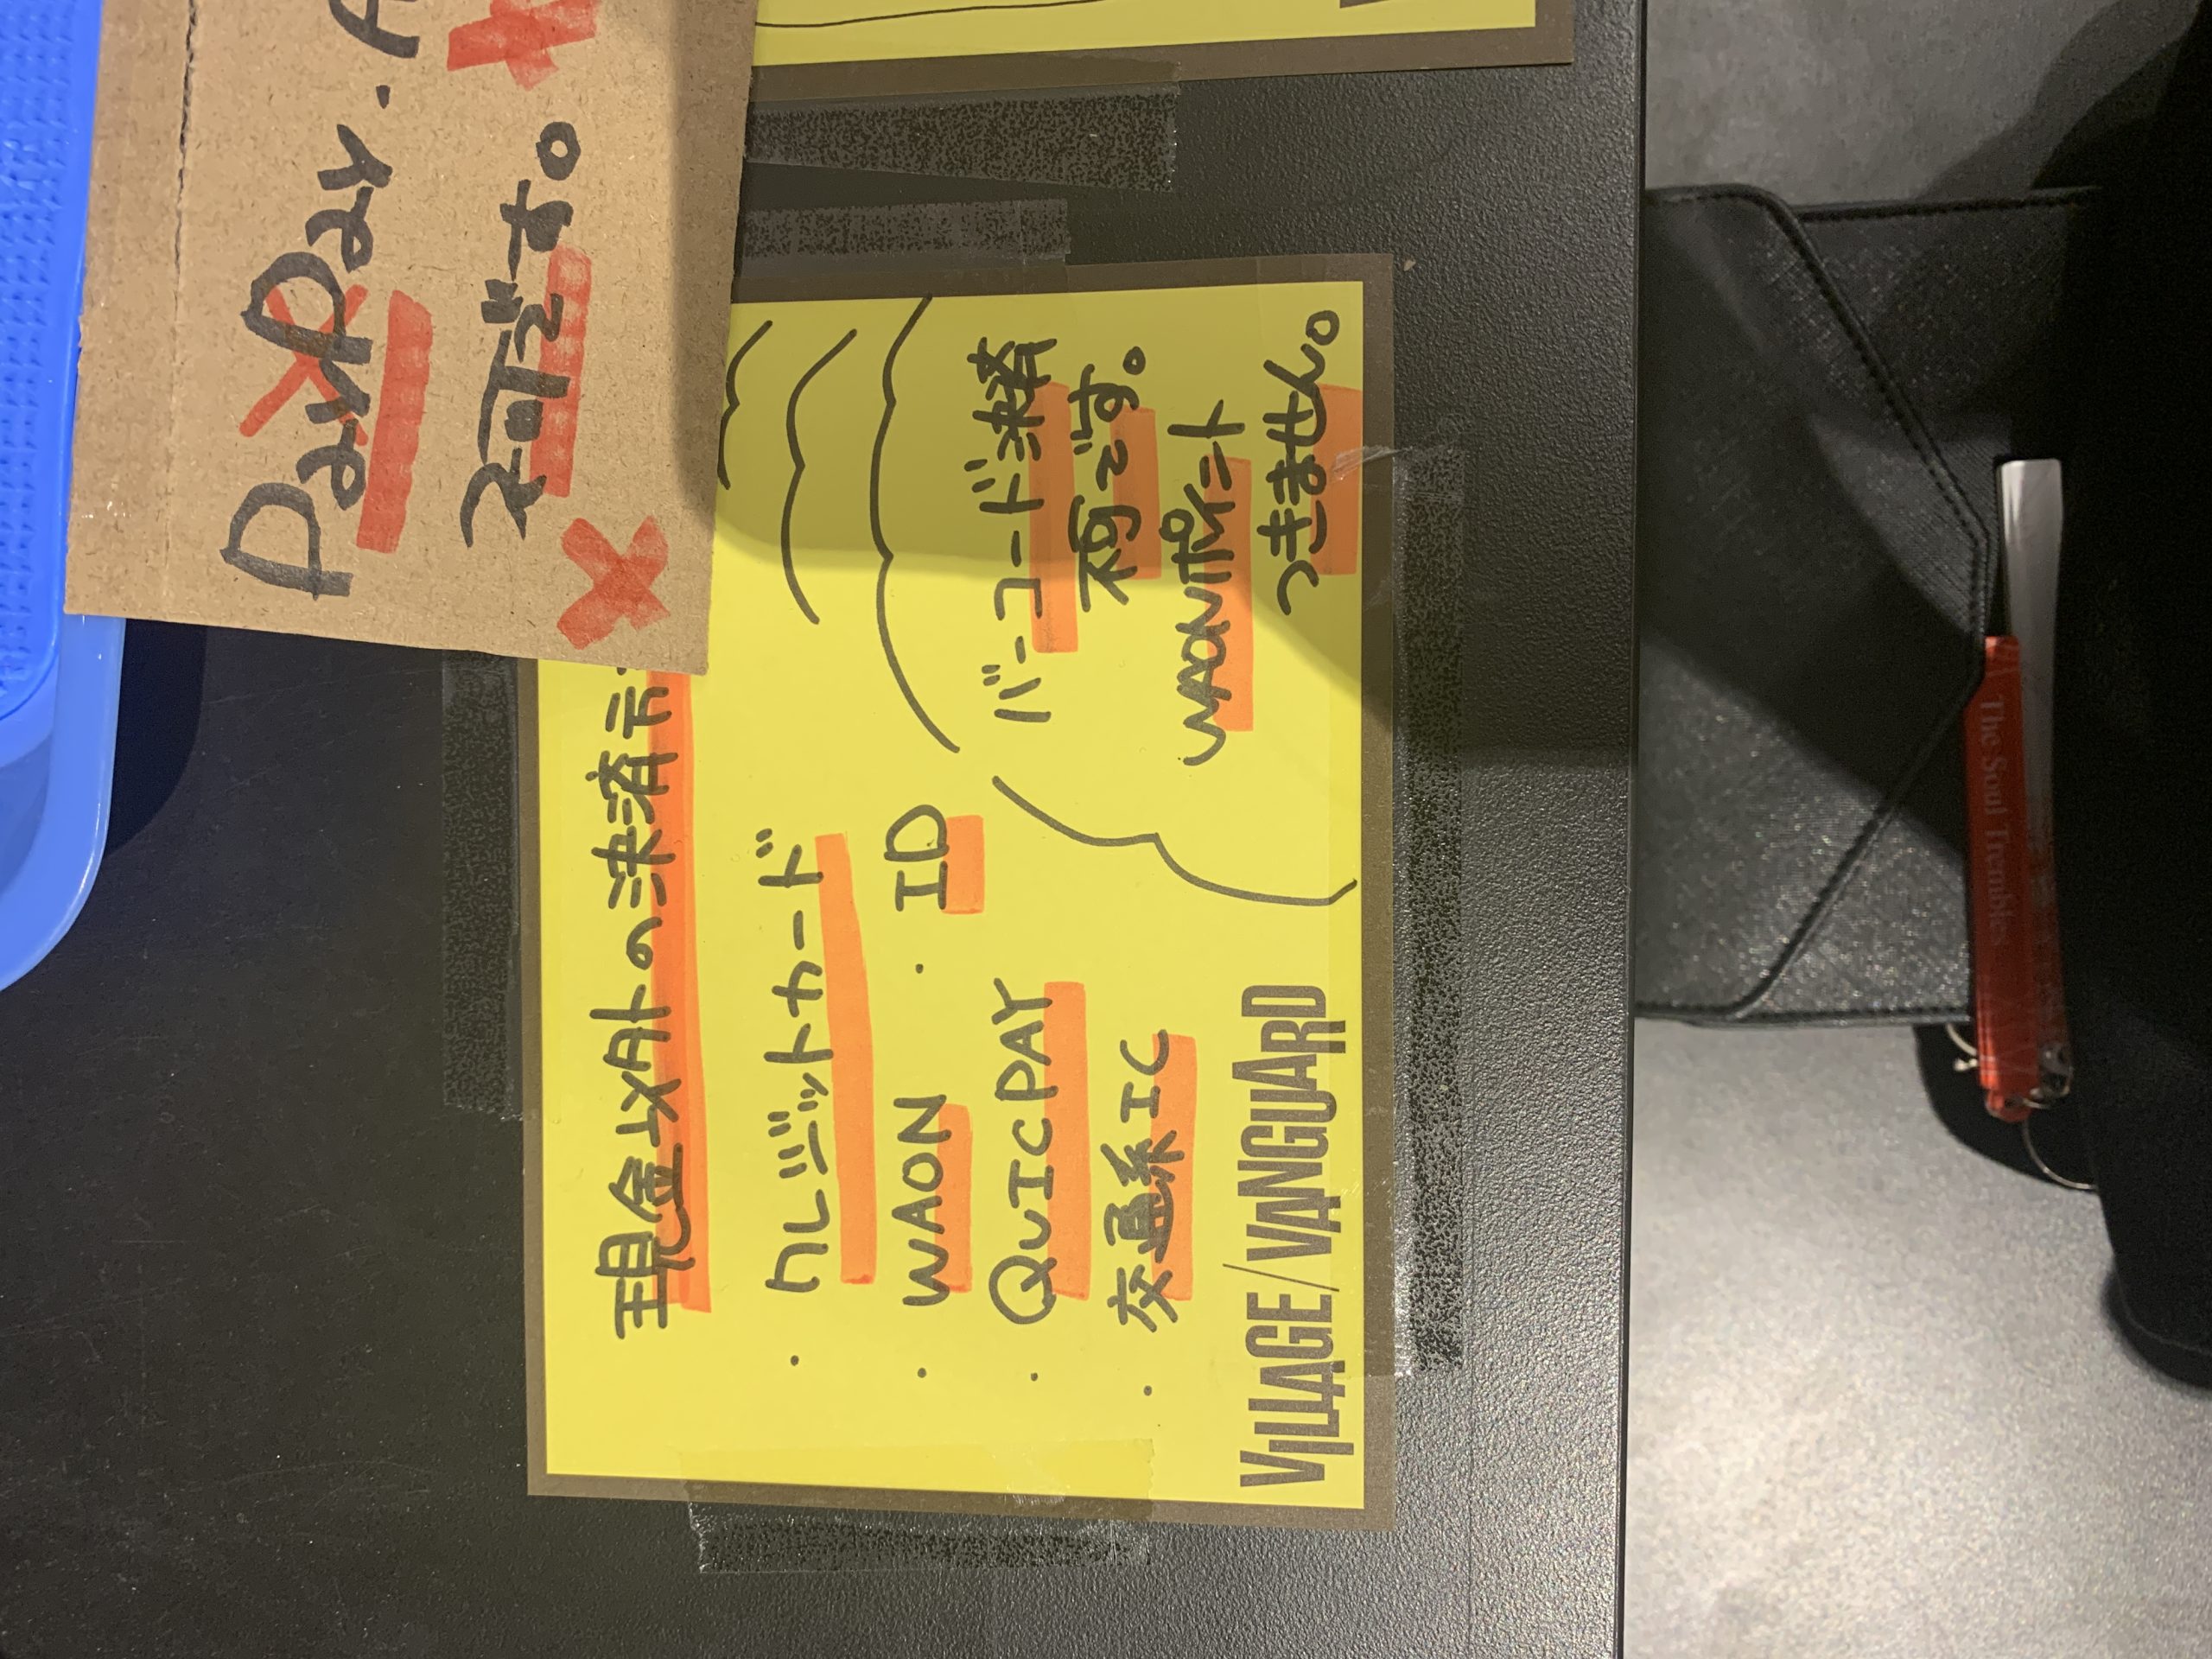 PayPay・
不可です。
現金以外の決済
・クレジットカード
・WAON ・ID
・QUICPAY
・交通系IC
バーコード決済
不可です。
WAONポイント
つきません。
VILLAGE/VANGUARD
The Soul Trembles